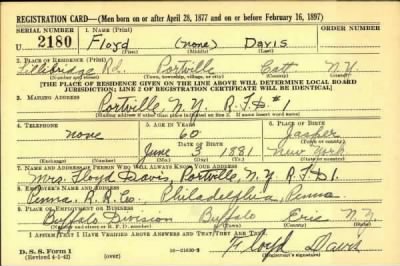 REGISTRATION CARD—(Men born on or after April 28, 1877 and on or before February 16, 1897)
SERIAL NUMBER 1. NAME (Print) ORDER NUMBER
U 2180 Floyd (none) Davis
(First) (Middle) (Last)
2. PLACE OF RESIDENCE (Print)
Lillibridge Rd. Portville Catt N.Y.
(Number and street) (Town, township, village, or city) (County) (State)
[THE PLACE OF RESIDENCE GIVEN ON THE LINE ABOVE WILL DETERMINE LOCAL BOARD
JURISDICTION; LINE 2 OF REGISTRATION CERTIFICATE WILL BE IDENTICAL]
3. MAILING ADDRESS
Portville, N.Y. R.F.D. #1
[Mailing address if other than place indicated on line 2. If same insert word same]
4. TELEPHONE 5. AGE IN YEARS 6. PLACE OF BIRTH
none 60 Jasper
DATE OF BIRTH (Town or county)
June 3 1881 New York
(Exchange) (Number) (Mo.) (Day) (Yr.) (State or country)
7. NAME AND ADDRESS OF PERSON WHO WILL ALWAYS KNOW YOUR ADDRESS
Mrs. Floyd Davis, Portville, N.Y. R.F.D. 1.
8. EMPLOYER'S NAME AND ADDRESS
Penna. R.R. Co. Philadelphia, Penna.
9. PLACE OF EMPLOYMENT OR BUSINESS
Buffalo Division Buffalo Erie N.Y.
(Number and street or R. F. D. number) (Town) (County) (State)
I AFFIRM THAT I HAVE VERIFIED ABOVE ANSWERS AND THAT THEY ARE TRUE.
D. S. S. Form 1
(Revised 4-1-42) (over) Floyd Davis